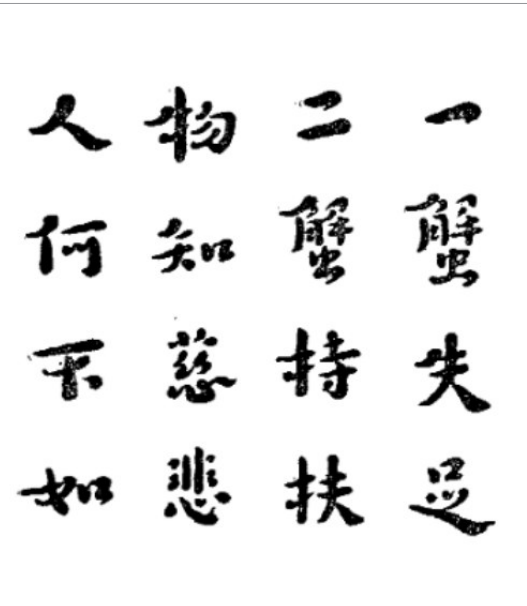 一蟹失足
二蟹持扶
物知慈悲
人何不如